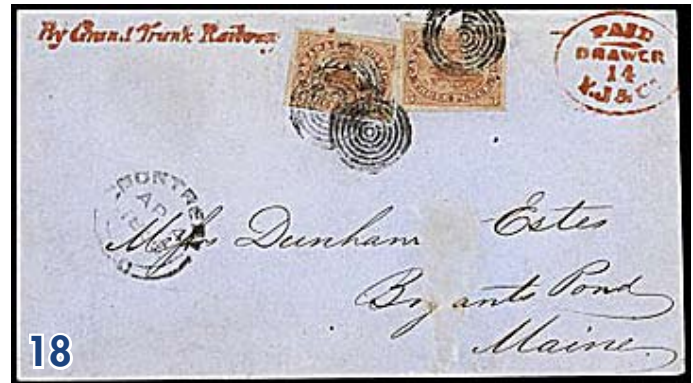 By Grand Trunk Railway
PAID
DRAWER
14
K.J & Co.
MONTREAL
AP
Messrs Dunham Estes
Bryants Pond
Maine
18